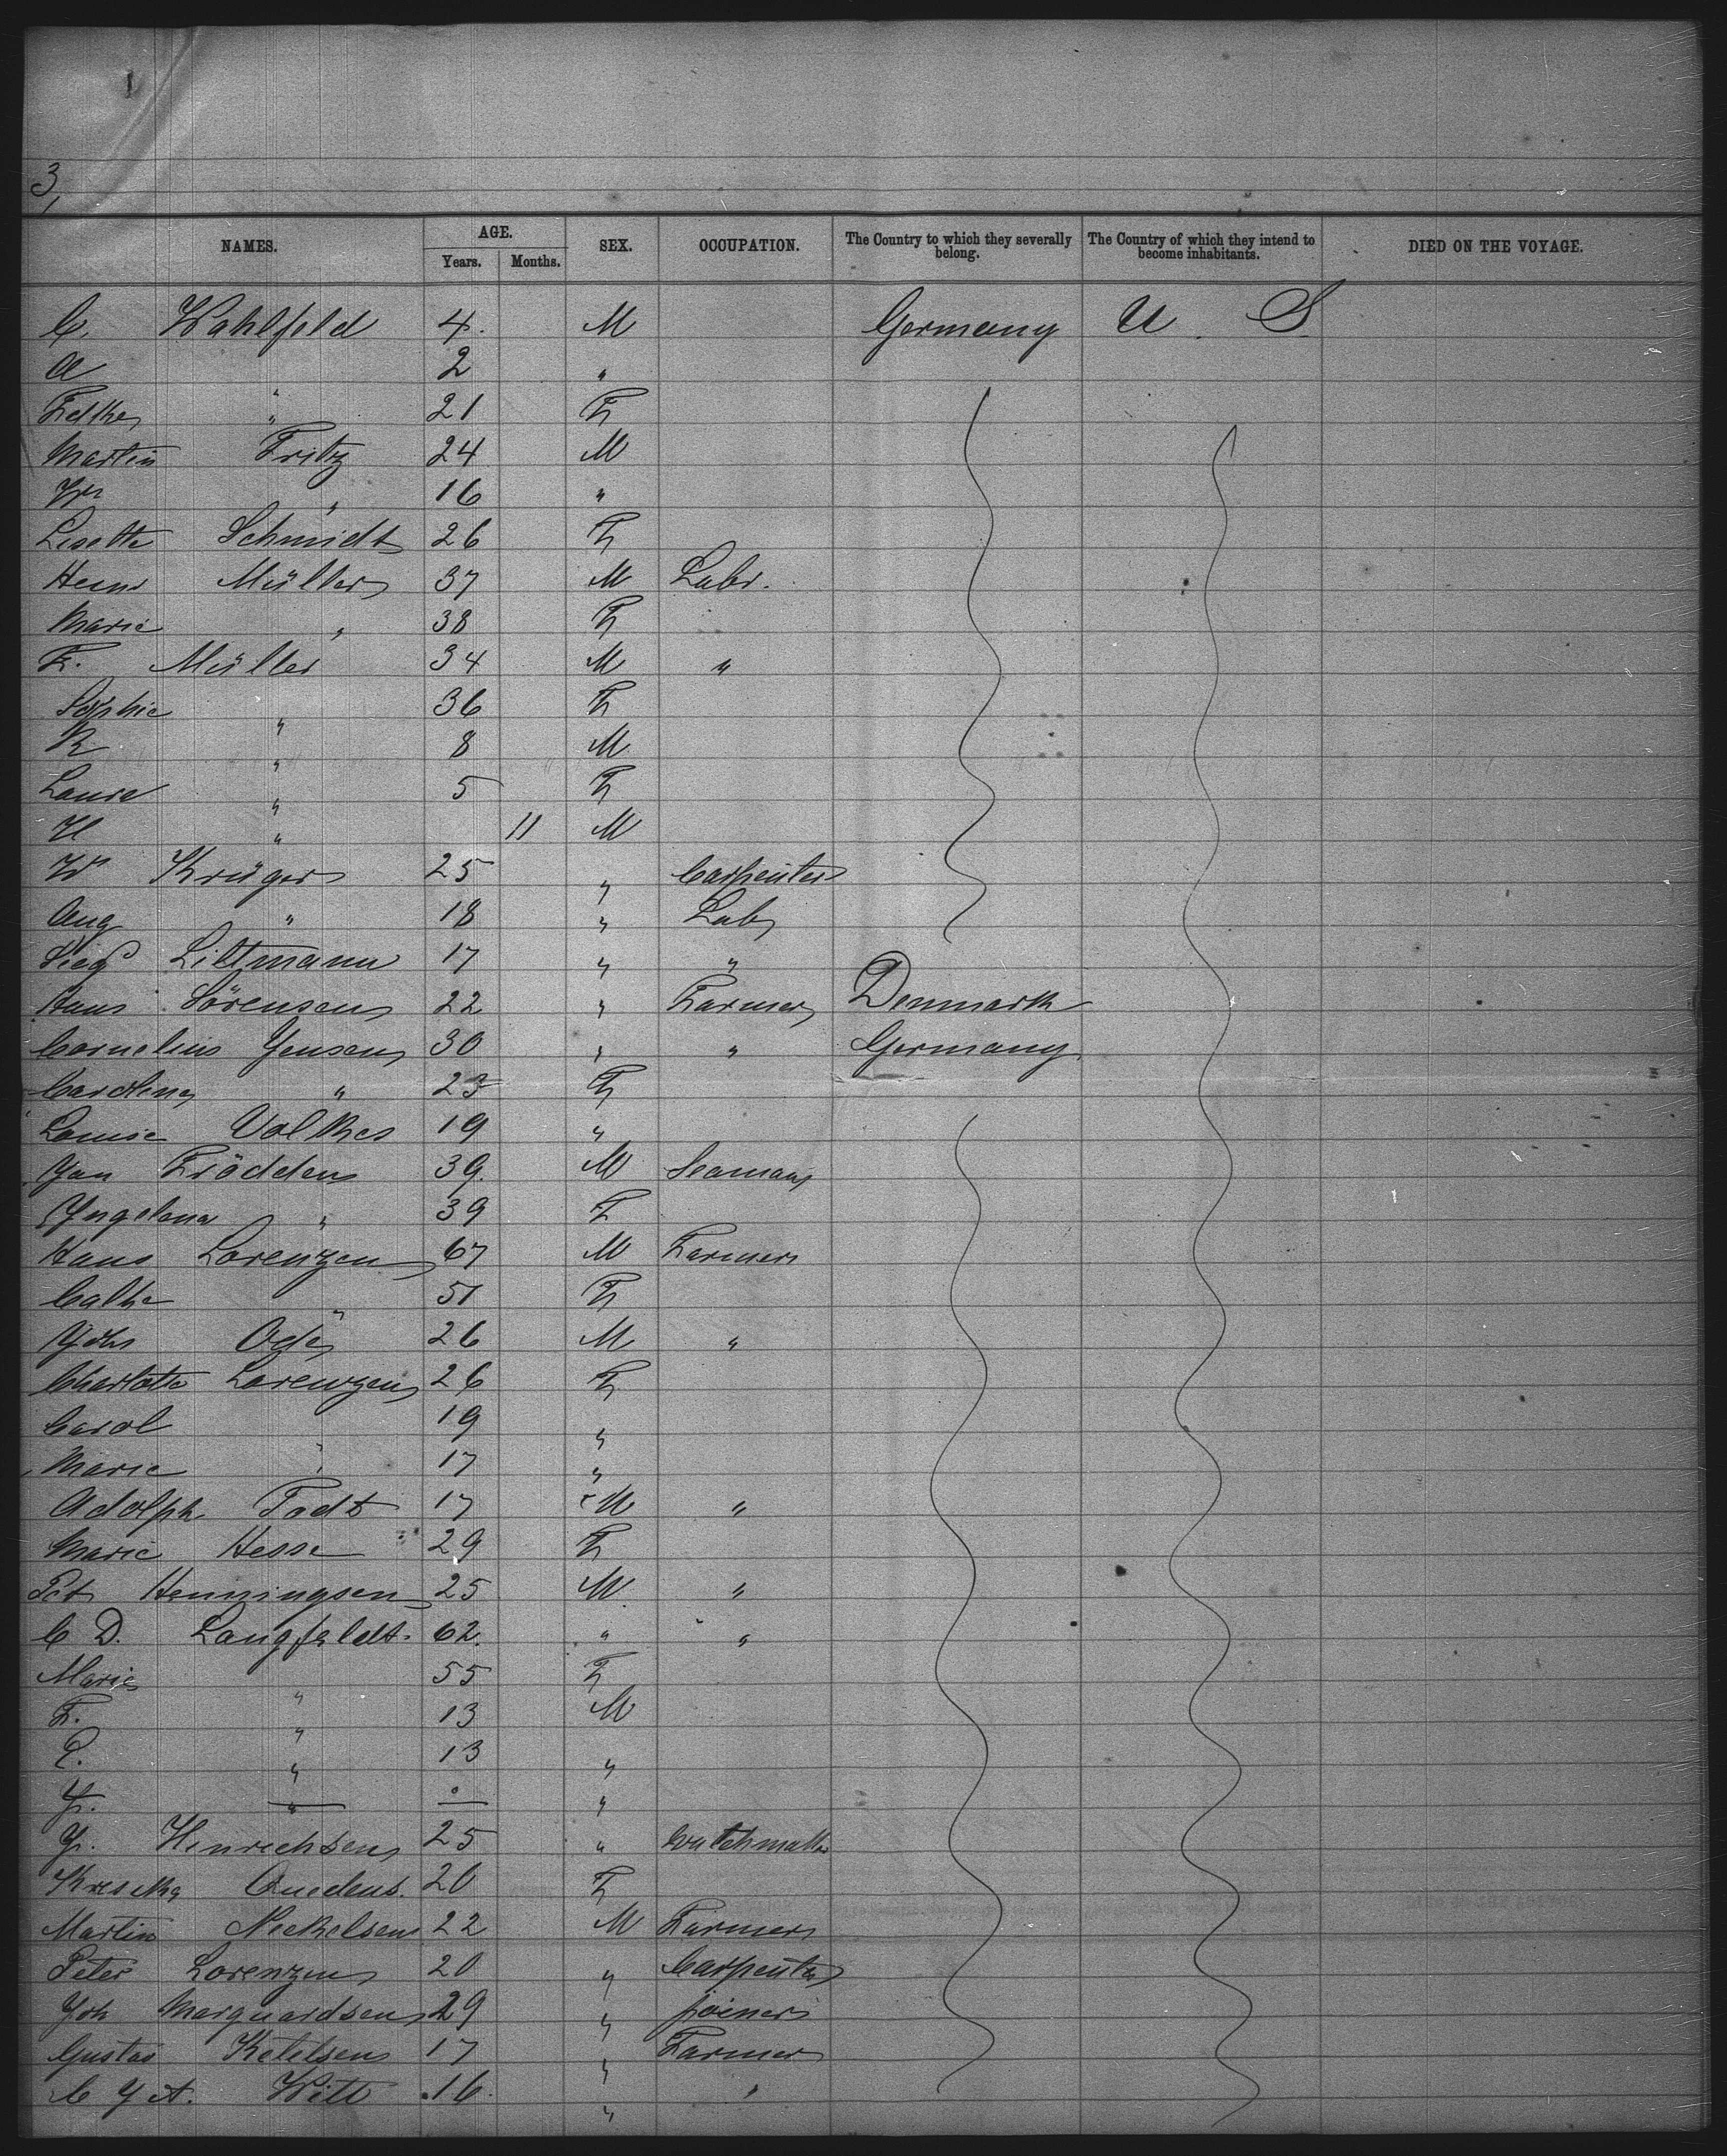 3,
NAMES. AGE. Years. Months. SEX. OCCUPATION. The Country to which they severally belong. The Country of which they intend to become inhabitants. DIED ON THE VOYAGE.
C. Wahlfeld 4. M Germany U. S
A " 2 "
" 21 F
Martin Fritz 24 M
Wm " 16 "
Lisette Schmidt 26 F
Heinr Müller 37 M Labr.
Marie " 38 F
F. Müller 34 M "
Sophie " 36 F
R " 8 M
Laura " 5 F
H " 11 M
W Krüger 25 " Carpenter
Aug " 18 " Lab
Siegf Littmann 17 " "
Hans Sörensen 22 " Farmer Denmark
Cornelius Jensen 30 " " Germany
Carolina " 23 F
Louise Volkes 19 "
Jan Fröddens 39. M Seaman
" 39 F
Hans Lorenzen 67 M Farmer
Cathe " 51 F
Joh 26 M "
Charlotte Lorenzen 26 F
Carol 19 "
Marie " 17 "
Adolph Todt 17 M "
Marie Hesse 29 F
Pet Henningsen 25 M "
C D. Langfeldt. 62. " "
Marie " 55 F
F. " 13 M
C. " 13 "
J. " "
J. Hinrichsen 25 " watchmak
Quedens. 20 F
Martin Nickelsen 22 M Farmer
Peter Lorenzen 20 " Carpenter
Joh Marquardsen 29 " joiner
Gustav Ketelsen 17 " Farmer
C J A. Witt 16. " "